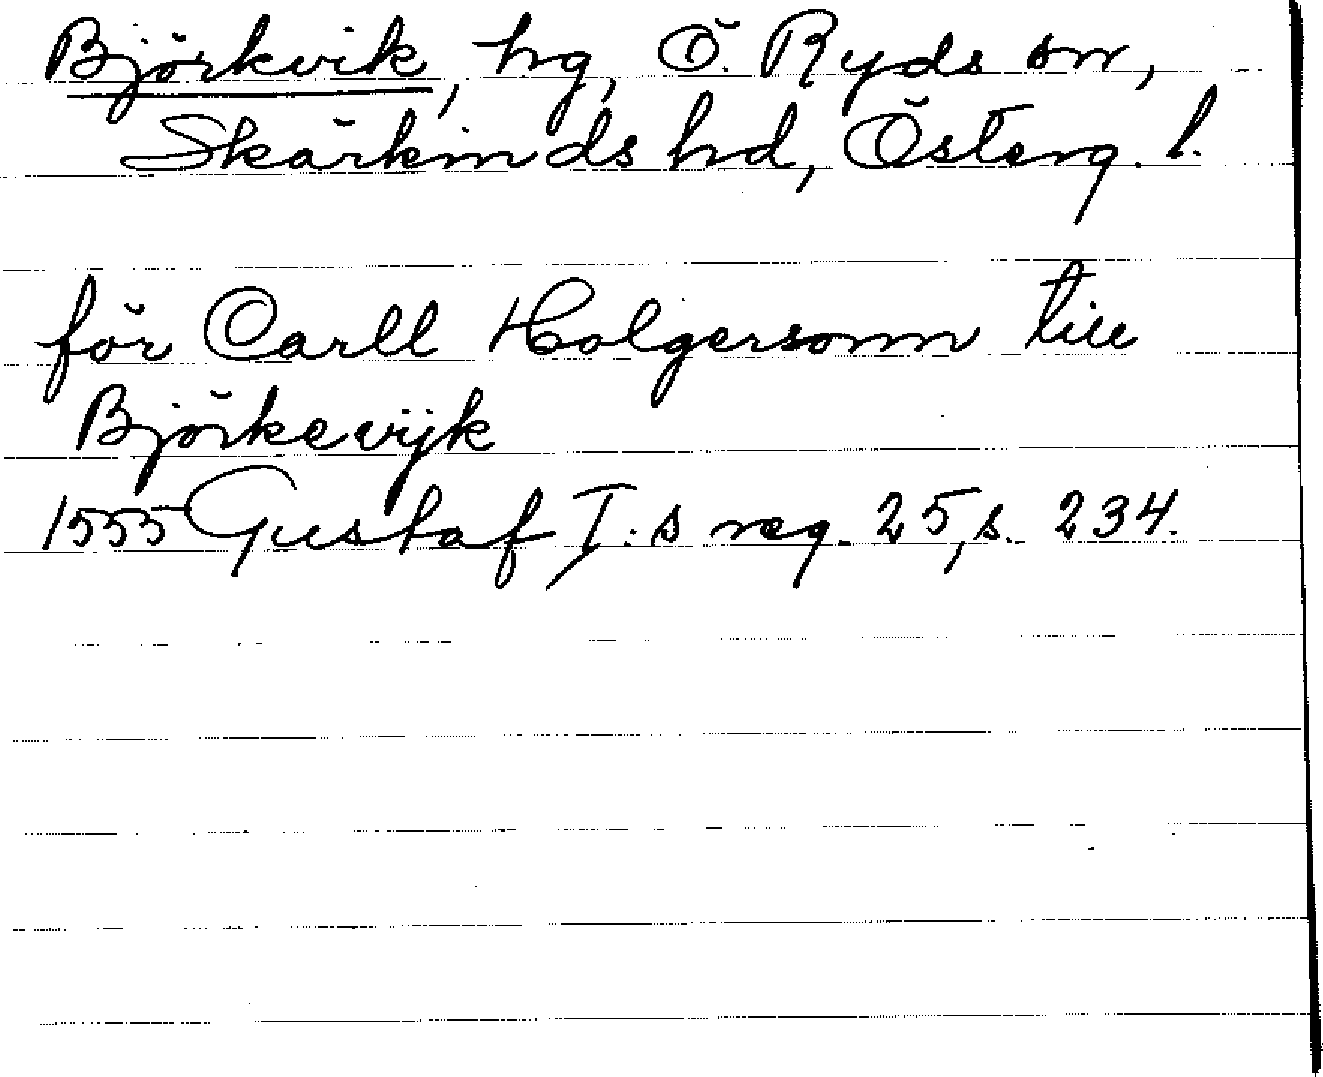 Björkvik, hg, Ö. Ryds sn,
Skärkinds hd, Österg. l.
för Carll Holgersonn till
Björkevijk
1555 Gustaf I:s reg. 25, s. 234.